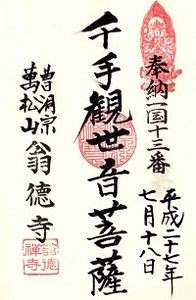 奉納一国十三番
平成二十七年
七月十八日
千手観世音菩薩
曹洞宗
萬松山翁徳寺
翁徳
禅寺